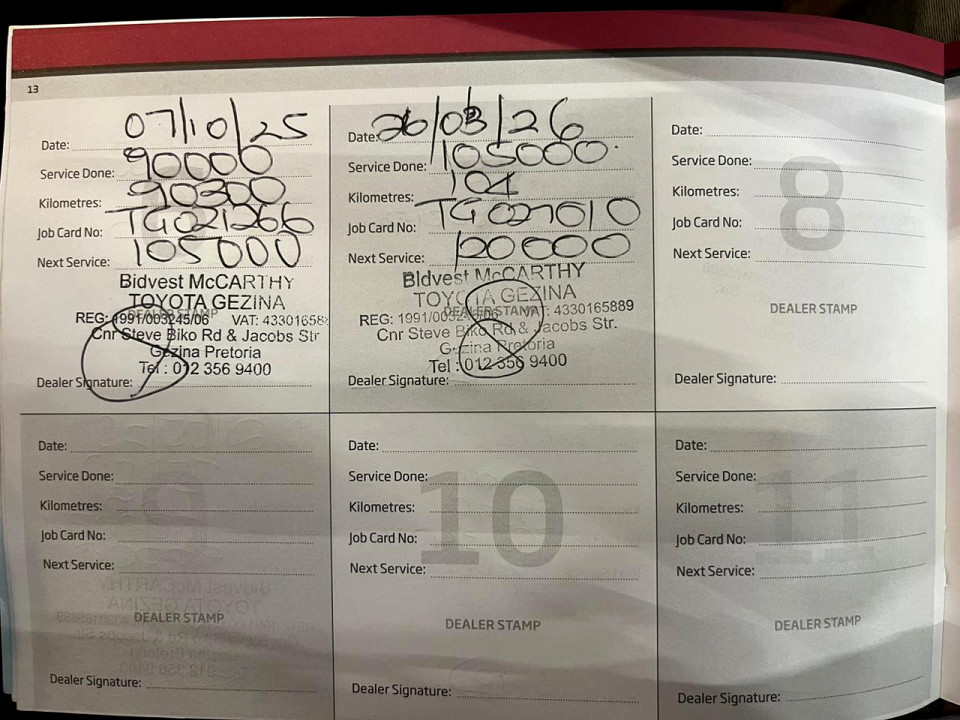 13
Date: 07/10/25
Service Done: 90000
Kilometres: 90300
Job Card No: TG021266
Next Service: 105000
Bidvest McCARTHY
TOYOTA GEZINA
DEALER STAMP
REG: 1991/003245/06 VAT: 433016588
Cnr Steve Biko Rd & Jacobs Str
Gezina Pretoria
Tel : 012 356 9400
Dealer Signature:
Date: 26/03/26
Service Done: 105000
Kilometres: 104
Job Card No: TG027010
Next Service: 120000
Bidvest McCARTHY
TOYOTA GEZINA
DEALER STAMP
REG: 1991/003245/06 VAT: 4330165889
Cnr Steve Biko Rd & Jacobs Str.
Gezina Pretoria
Tel : 012 356 9400
Dealer Signature:
8
Date:
Service Done:
Kilometres:
Job Card No:
Next Service:
DEALER STAMP
Dealer Signature:
9
Date:
Service Done:
Kilometres:
Job Card No:
Next Service:
DEALER STAMP
Dealer Signature:
10
Date:
Service Done:
Kilometres:
Job Card No:
Next Service:
DEALER STAMP
Dealer Signature:
11
Date:
Service Done:
Kilometres:
Job Card No:
Next Service:
DEALER STAMP
Dealer Signature: